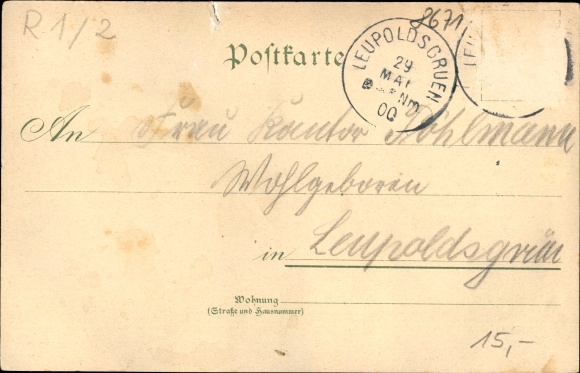 R 1/2
8671
Postkarte
LEUPOLDSGRUEN
29
MAI
Nm
00
An Frau Kantor Pöhlmann
Wohlgeboren
in Leupoldsgrün
Wohnung
(Straße und Hausnummer)
15,-